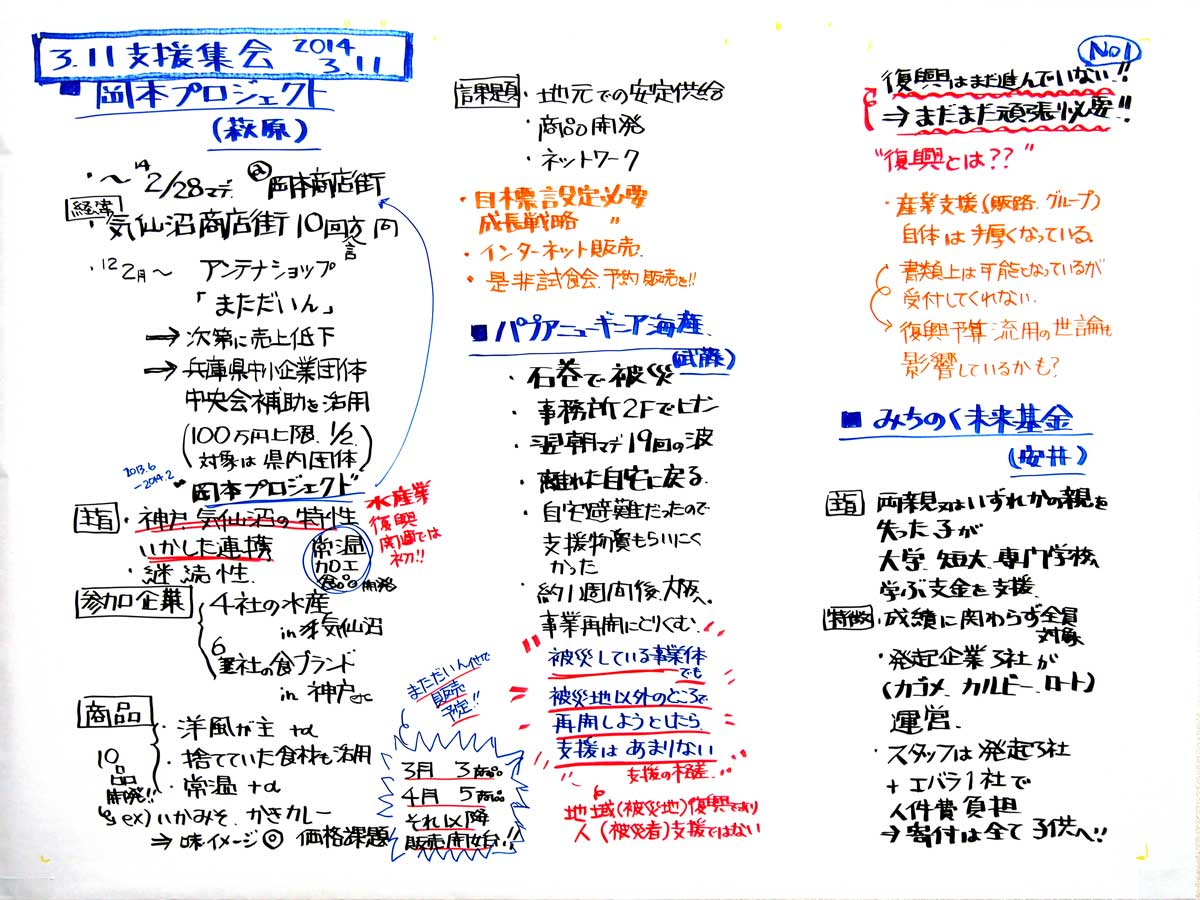 3.11支援集会 2014 3.11
No1
■ 岡本プロジェクト
(萩原)
・〜'14 2/28マデ @岡本商店街
経緯
・気仙沼商店街10回訪問
・'12 2月〜 アンテナショップ
「まただいん」
→ 次第に売上低下
→ 兵庫県中小企業団体
中央会補助を活用
(100万円上限.1/2.
対象は県内団体)
2013.6
-2014.2
"岡本プロジェクト"
主旨 ・神戸.気仙沼の特性
いかした連携
・継続性.
常温
加工
食品開発
水産業
復興
関連では
初!!
参加企業
4社の水産
in 気仙沼
6社の食ブランド
in 神戸etc
商品
10品
開発!!
・洋風が主 +α
・捨てていた食材も活用
・常温 +α
ex) いかみそ.かきカレー
⇒ 味イメージ◎ 価格課題
まただいん他で
販売
予定!!
3月 3商品
4月 5商品
それ以降
販売開始!!
課題 ・地元での安定供給
・商品開発
・ネットワーク
・目標設定必要
成長戦略 〃
・インターネット販売.
・是非試食会.予約販売を!!
■パプアニューギニア海産.
(武藤)
・石巻で被災
・事務所2Fでヒナン
・翌朝マデ19回の波
・離れた自宅に戻る.
・自宅避難だったので
支援物資もらいにく
かった
・約1週間後.大阪へ.
事業再開にとりくむ.
被災している事業体
でも
被災地以外のところで
再開しようとしたら
支援はあまりない
支援の格差.
地域(被災地)復興であり
人(被災者)支援ではない
復興はまだ進んでいない!!
⇒まだまだ頑張り必要!!
"復興とは??"
・産業支援(販路.グループ)
自体は手厚くなっている.
書類上は可能となっているが
受付してくれない.
復興予算流用の世論も
影響しているかも?
■ みちのく未来基金
(安井)
主旨 両親又はいずれかの親を
失った子が
大学.短大.専門学校へ
学ぶ支金を支援.
特徴 ・成績に関わらず全員
対象
・発起企業3社が
(カゴメ.カルビー.ロート)
運営.
・スタッフは発起3社
+エバラ1社で
人件費負担
⇒寄付は全て子供へ!!